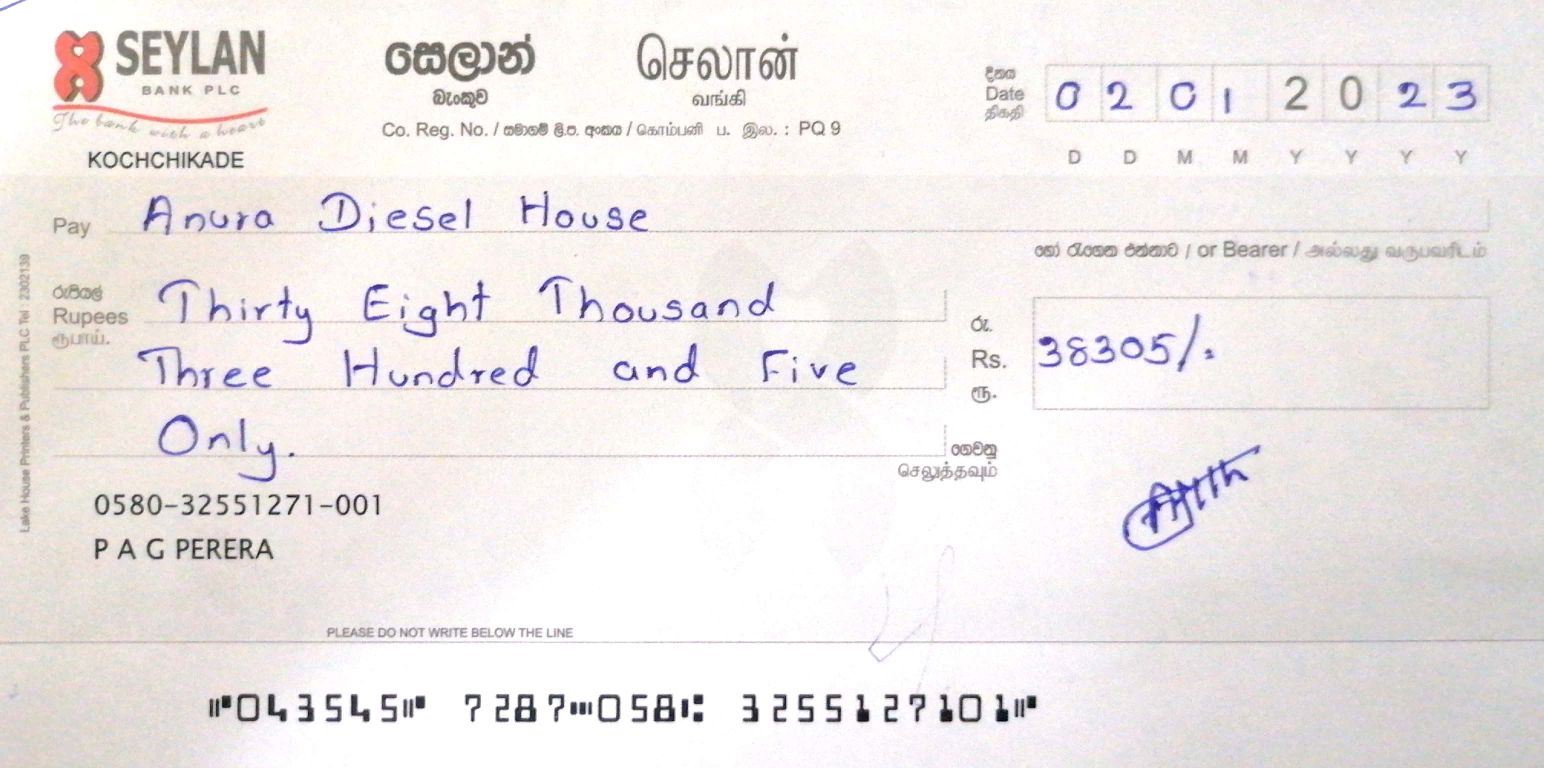 SEYLAN
BANK PLC
The bank with a heart
KOCHCHIKADE
සෙලාන්
බැංකුව
செலான்
வங்கி
Co. Reg. No. / සමාගම් ලි.ප. අංකය / கொம்பனி ப. இல. : PQ 9
දිනය
Date
திகதி
0 2 0 1 2 0 2 3
D D M M Y Y Y Y
Pay Anura Diesel House
හෝ රැගෙන එන්නාට / or Bearer / அல்லது வருபவரிடம்
රුපියල්
Rupees
ரூபாய்.
Thirty Eight Thousand
Three Hundred and Five
Only.
ගෙවනු
செலுத்தவும்
රු.
Rs.
ரூ.
38305/.
0580-32551271-001
P A G PERERA
Lake House Printers & Publishers PLC Tel 2302139
PLEASE DO NOT WRITE BELOW THE LINE
⑈043545⑈ 7287⑉058⑆ 3255127101⑈